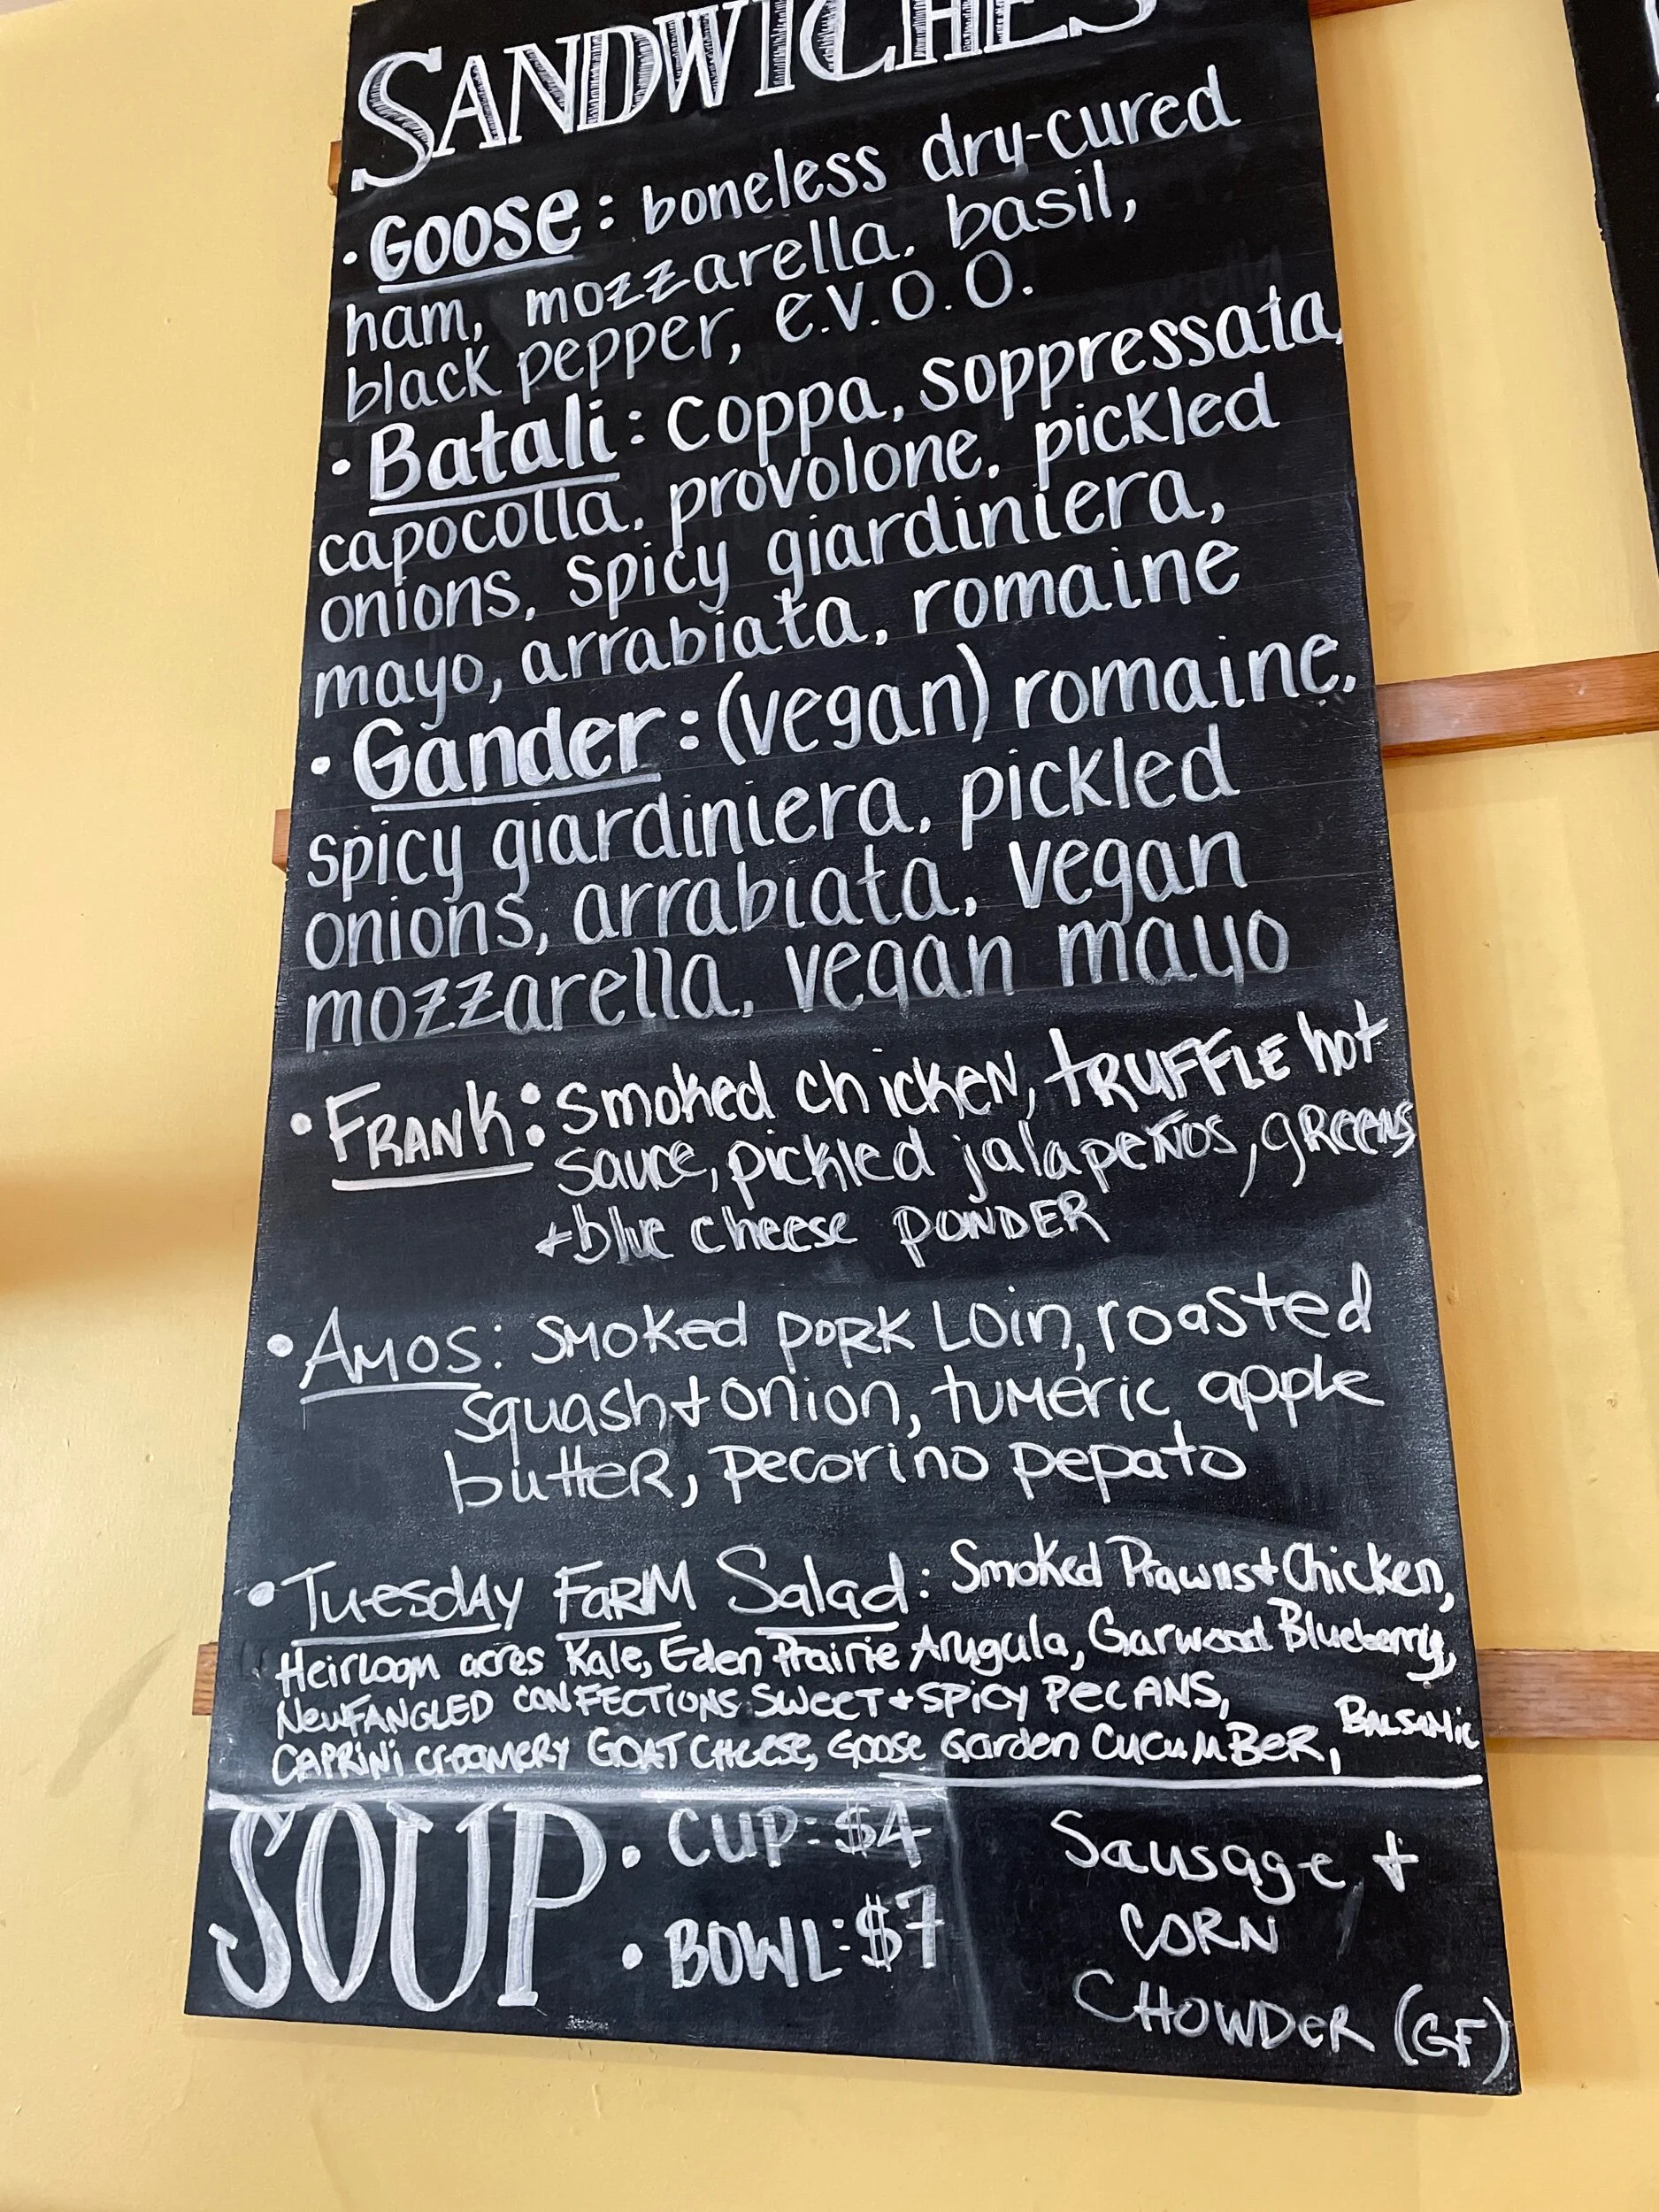 SANDWICHES
· GOOSE: boneless dry-cured
ham, mozzarella, basil,
black pepper, e.v.o.o.
· Batali: coppa, soppressata,
capocolla, provolone, pickled
onions, spicy giardiniera,
mayo, arrabiata, romaine
· Gander: (vegan) romaine,
spicy giardiniera, pickled
onions, arrabiata, vegan
mozzarella, vegan mayo
• FRANK: smoked chicken, TRUFFLE hot
sauce, pickled jalapeños, gReens
+ blue cheese POWDER
• AMOS: SMOKed PORK LOin, roasted
squash + onion, tuMeric apple
butteR, pecorino pepato
• Tuesday FARM Salad: Smoked Prawns + Chicken,
Heirloom acres Kale, Eden Prairie Arugula, Garwood Blueberry,
NewFANGLED CONFECTIONS SWEET + SPICY PECANS,
CAPRINI creamery GOAT CHEESE, Goose Garden CucuMBeR, BALSAMic
SOUP
• CUP: $4
• BOWL: $7
Sausage +
CORN
CHOWDeR (GF)